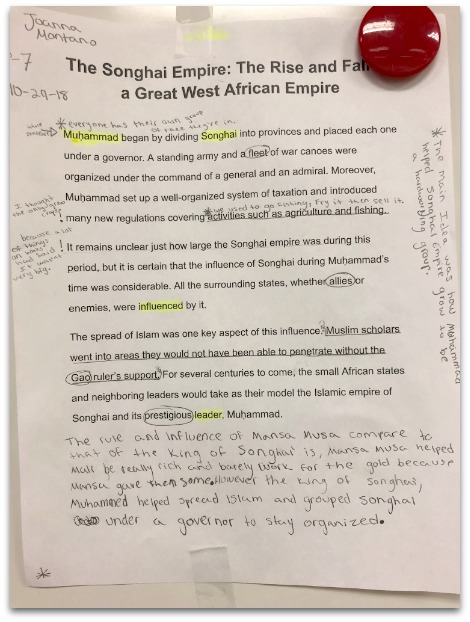 Joanna
Montano
-7
10-29-18
The Songhai Empire: The Rise and Fall
a Great West African Empire
*everyone has their own group
of race they're in.
Muḥammad began by dividing Songhai into provinces and placed each one
under a governor. A standing army and a fleet of war canoes were
organized under the command of a general and an admiral. Moreover,
Muḥammad set up a well-organized system of taxation and introduced
*we used to go fishing, fry it then sell it.
many new regulations covering activities such as agriculture and fishing.
I thought
the only grew
crops!
! It remains unclear just how large the Songhai empire was during this
period, but it is certain that the influence of Songhai during Muḥammad's
time was considerable. All the surrounding states, whether allies or
enemies, were influenced by it.
because a lot
of things
on
had said
it wasn't
very big.
The spread of Islam was one key aspect of this influence. Muslim scholars
went into areas they would not have been able to penetrate without the
Gao ruler's support. For several centuries to come, the small African states
and neighboring leaders would take as their model the Islamic empire of
Songhai and its prestigious leader, Muḥammad.
*The main Idea was how Muhammad
helped Songhai Empire grow to be
a group.
The rule and influence of Mansa Musa compare to
that of the King of Songhai is, Mansa Musa helped
Mali be really rich and barely work for the gold because
Mansa gave them some. However the king of Songhai,
Muhammed helped spread Islam and grouped Songhai
under a governor to stay organized.
*